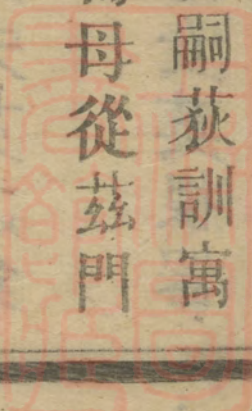 嗣荻訓寓
母從茲門